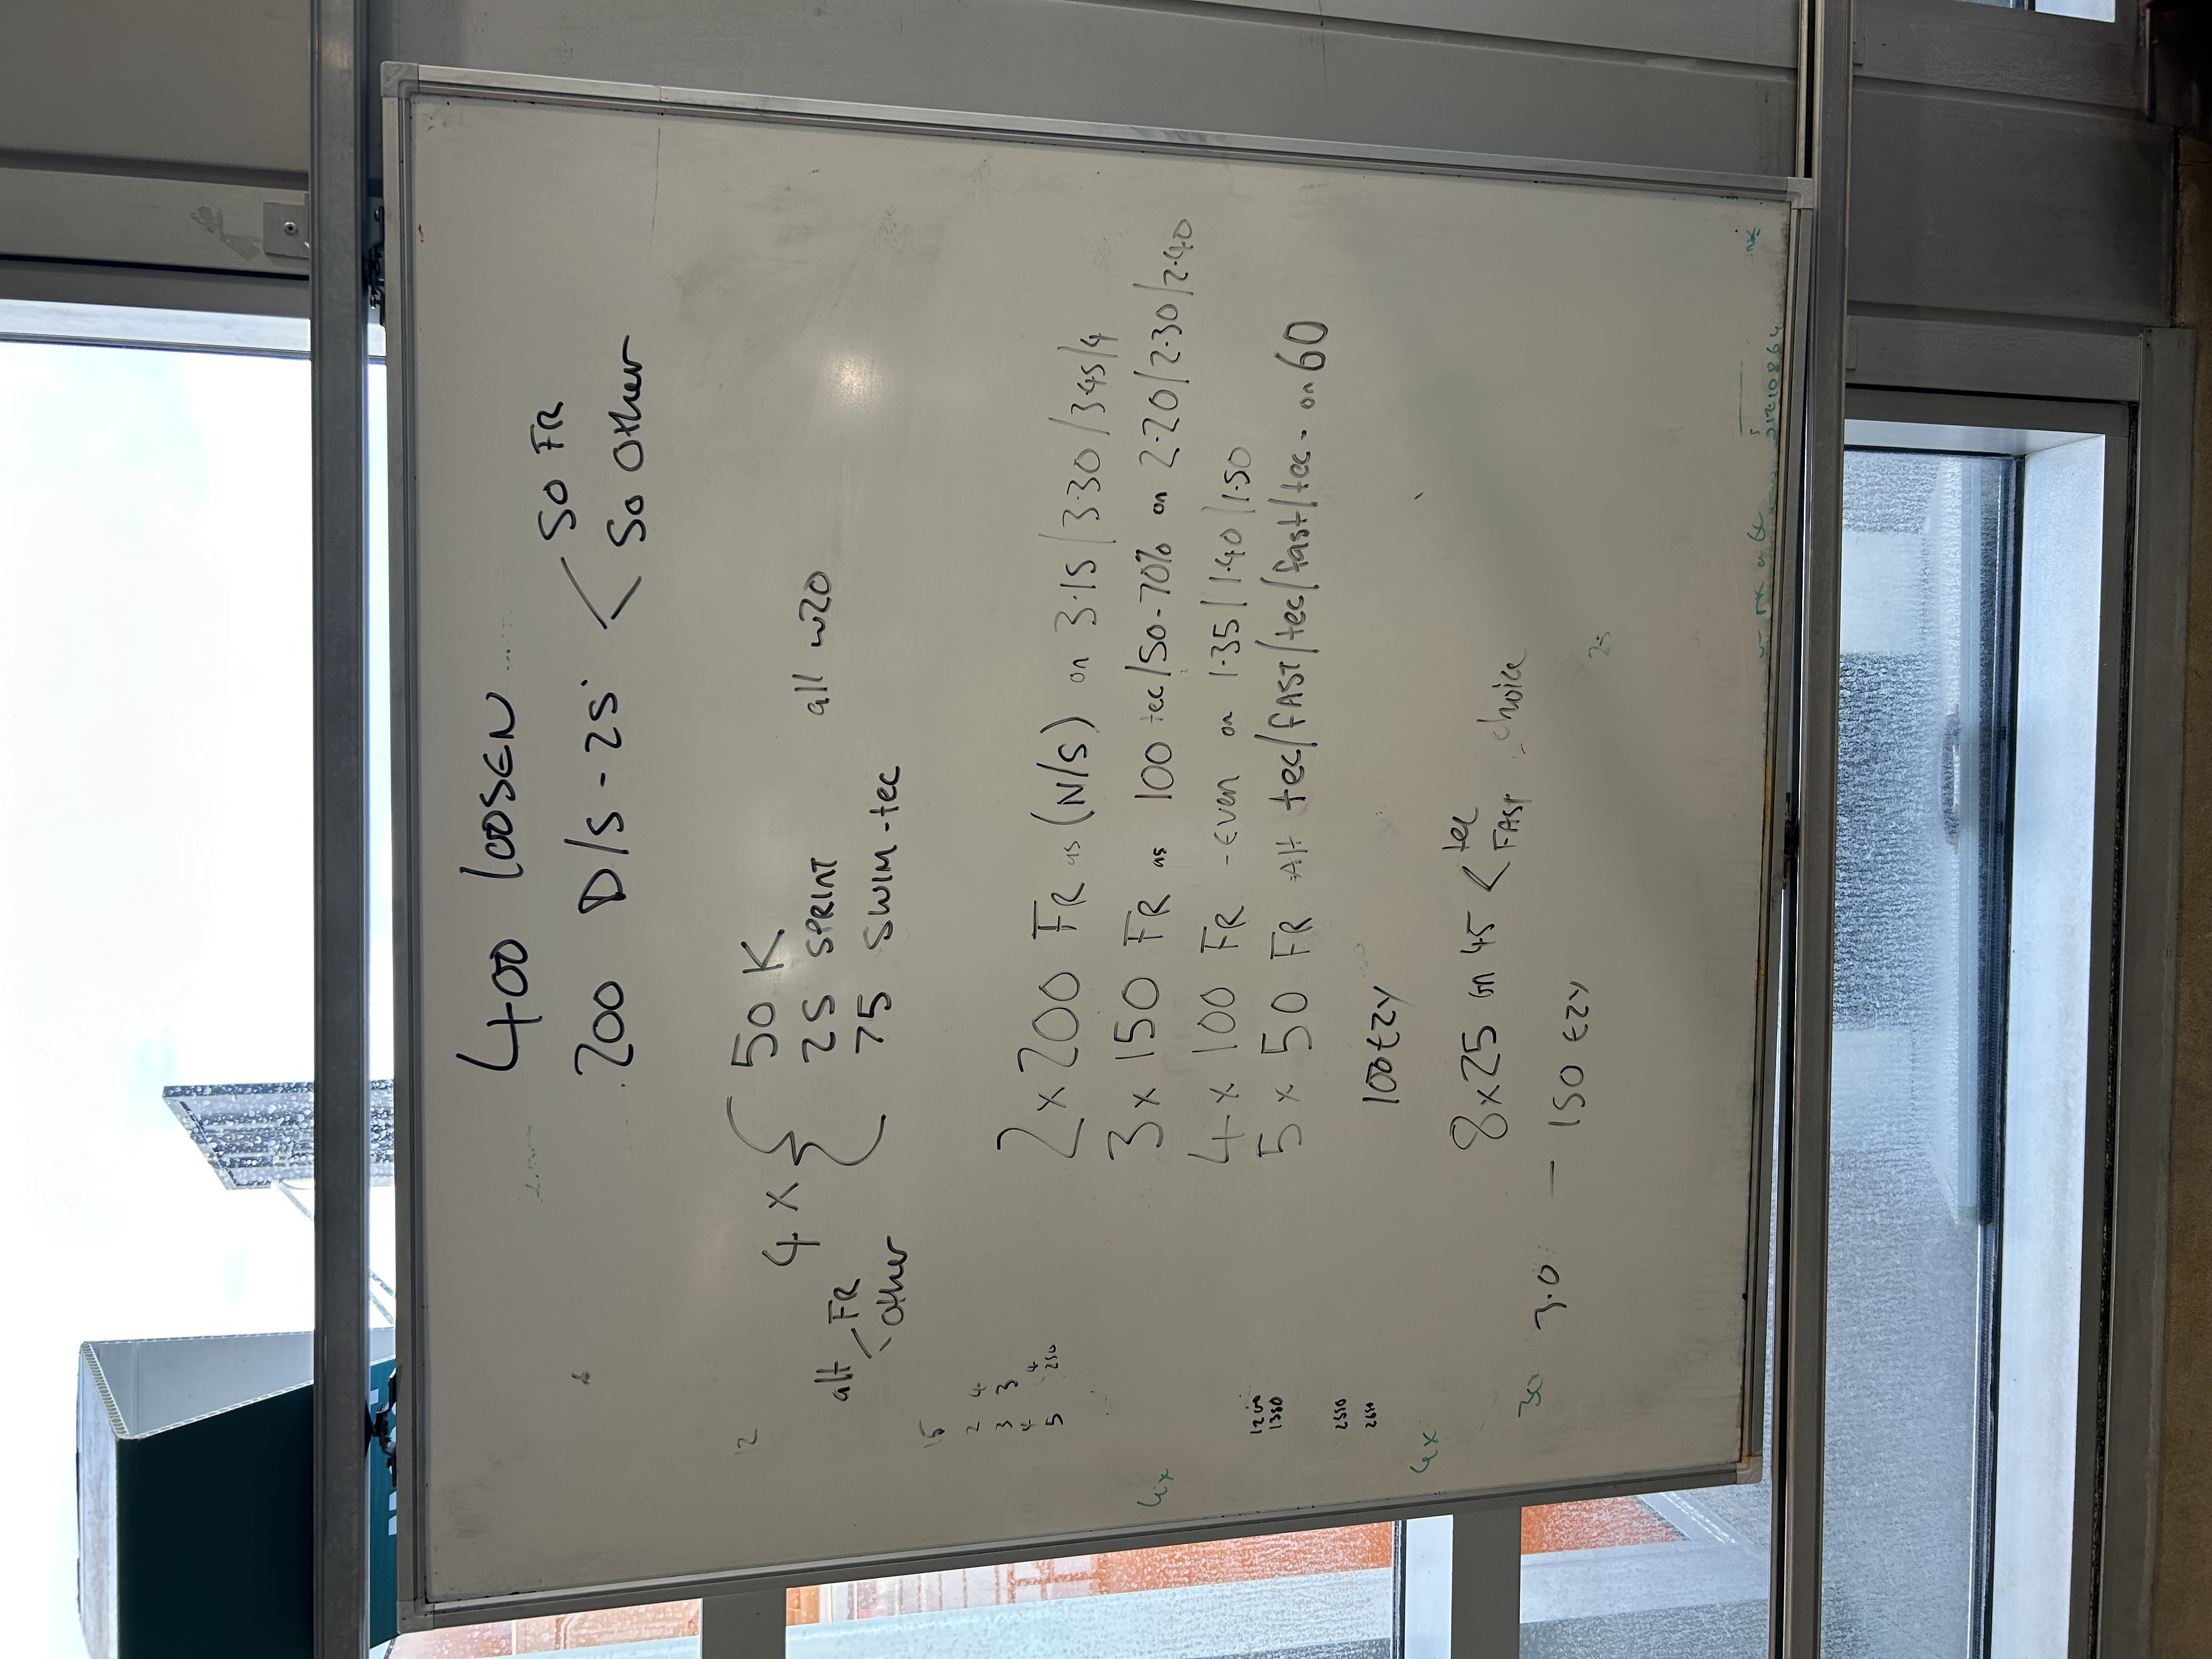 400 LOOSEN
200 D/S - 25 < 50 FR
50 Other
4 x { 50 K
25 SPRINT
75 SWIM - tec
all w20
alt < FR
other
2 x 200 FR as (N/S) on 3.15/3.30/3.45/4
3 x 150 FR as 100 tec/50-70% on 2.20/2.30/2.40
4 x 100 FR - EVEN on 1.35/1.40/1.50
5 x 50 FR Alt tec/FAST/tec/fast/tec. on 60
100 EZY
8 x 25 on 45 < tec
FAST choice
3.0 — 150 EZY
12
15
2 4
3 3
4 4
5 250
1200
1350
2550
2650
4x
4x
30
25